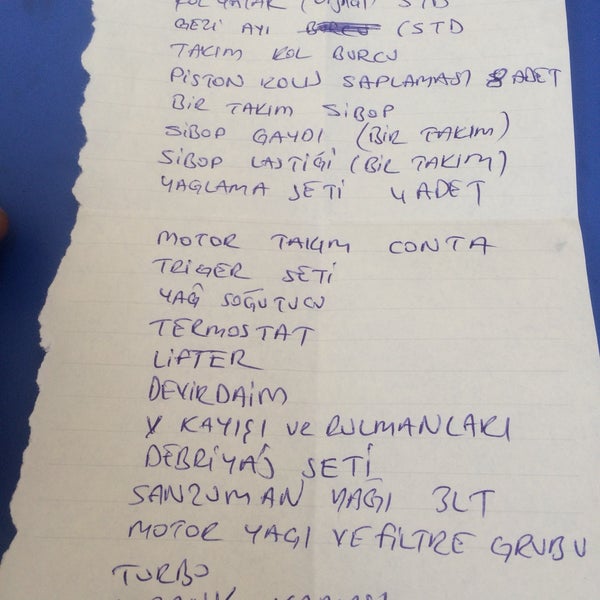 KOL YATAK (Orjinal) STD
GEZİ AYI (STD
TAKIM KOL BURCU
PİSTON KOLU SAPLAMASI 8 ADET
BİR TAKIM SİBOP
SİBOP GAYDI (BİR TAKIM)
SİBOP LASTİĞİ (BİL TAKIM)
YAGLAMA SETİ 4 ADET
MOTOR TAKIM CONTA
TRİGER SETİ
YAĞ SOĞUTUCU
TERMOSTAT
LİFTER
DEVİRDAİM
V KAYIŞI ve RULMANLARI
DEBRİYAJ SETİ
SANZUMAN YAĞI 3LT
MOTOR YAGI VE FİLTRE GRUBU
TURBO